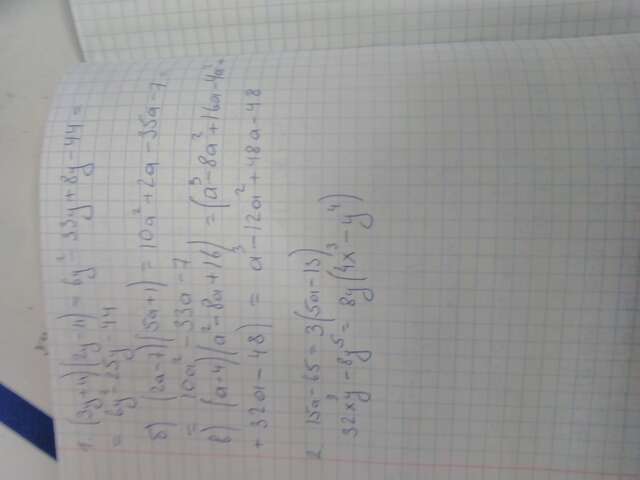 1. (3y+4)(2y-11) = 6y²-33y+8y-44 =
= 6y²-25y-44
б) (2a-7)(5a+1) = 10a²+2a-35a-7=
= 10a²-33a-7
в) (a-4)(a²-8a+16) = (a³-8a²+16a-4a²+
+32a-48) = a³-12a²+48a-48
2. 15a-65=3(5a-13)
32x³y-8y⁵=8y(4x³-y⁴)